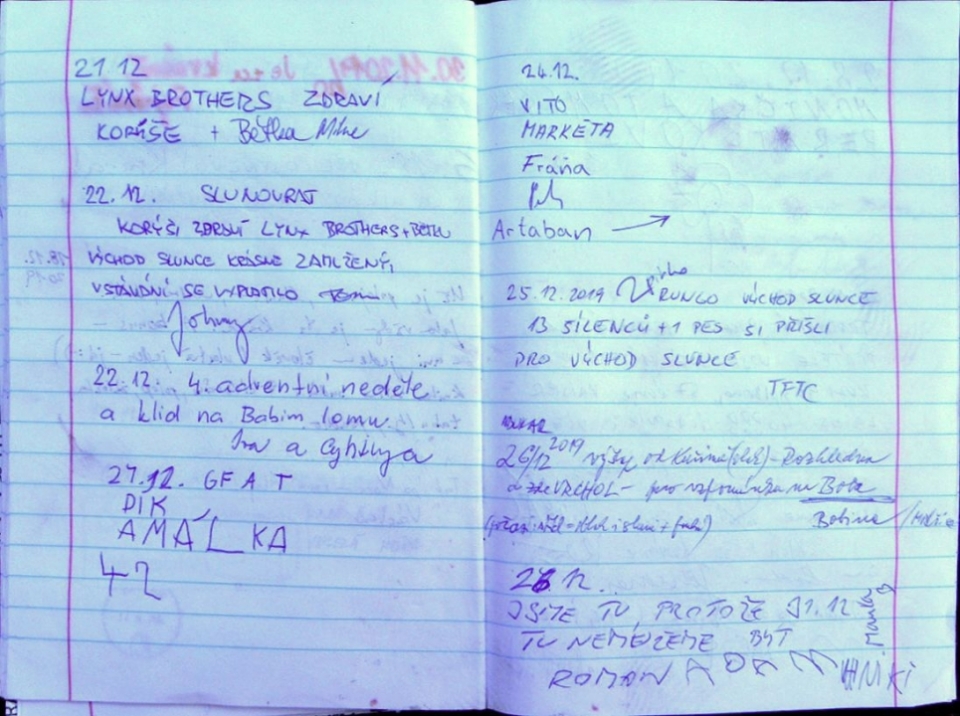 21 12
LYNX BROTHERS ZDRAVÍ
KORÝŠE + Bětka
22.12. SLUNOVRAT
KORÝŠI ZDRAVÍ LYNX BROTHERS + BĚTKU
VÝCHOD SLUNCE KRÁSNĚ ZAMLŽENÝ,
VSTÁVÁNÍ SE VYPLATILO
Johny
22.12. 4. adventní neděle
a klid na Babím lomu
Iva a
27.12. GFAT
DIK
AMÁLKA
42
24.12.
VÍŤO
MARKÉTA
Fráňa
Artaban →
25.12.2019 VÝCHOD SLUNCE
13 ŠÍLENCŮ + 1 PES SI PŘIŠLI
PRO VÝCHOD SLUNCE
TFTC
26/12 2019 od Rozhledna
a VRCHOL – pro
28.12.
JSME TU, PROTOŽE 31.12
TU NEMŮŽEME BÝT
ROMAN ADAM